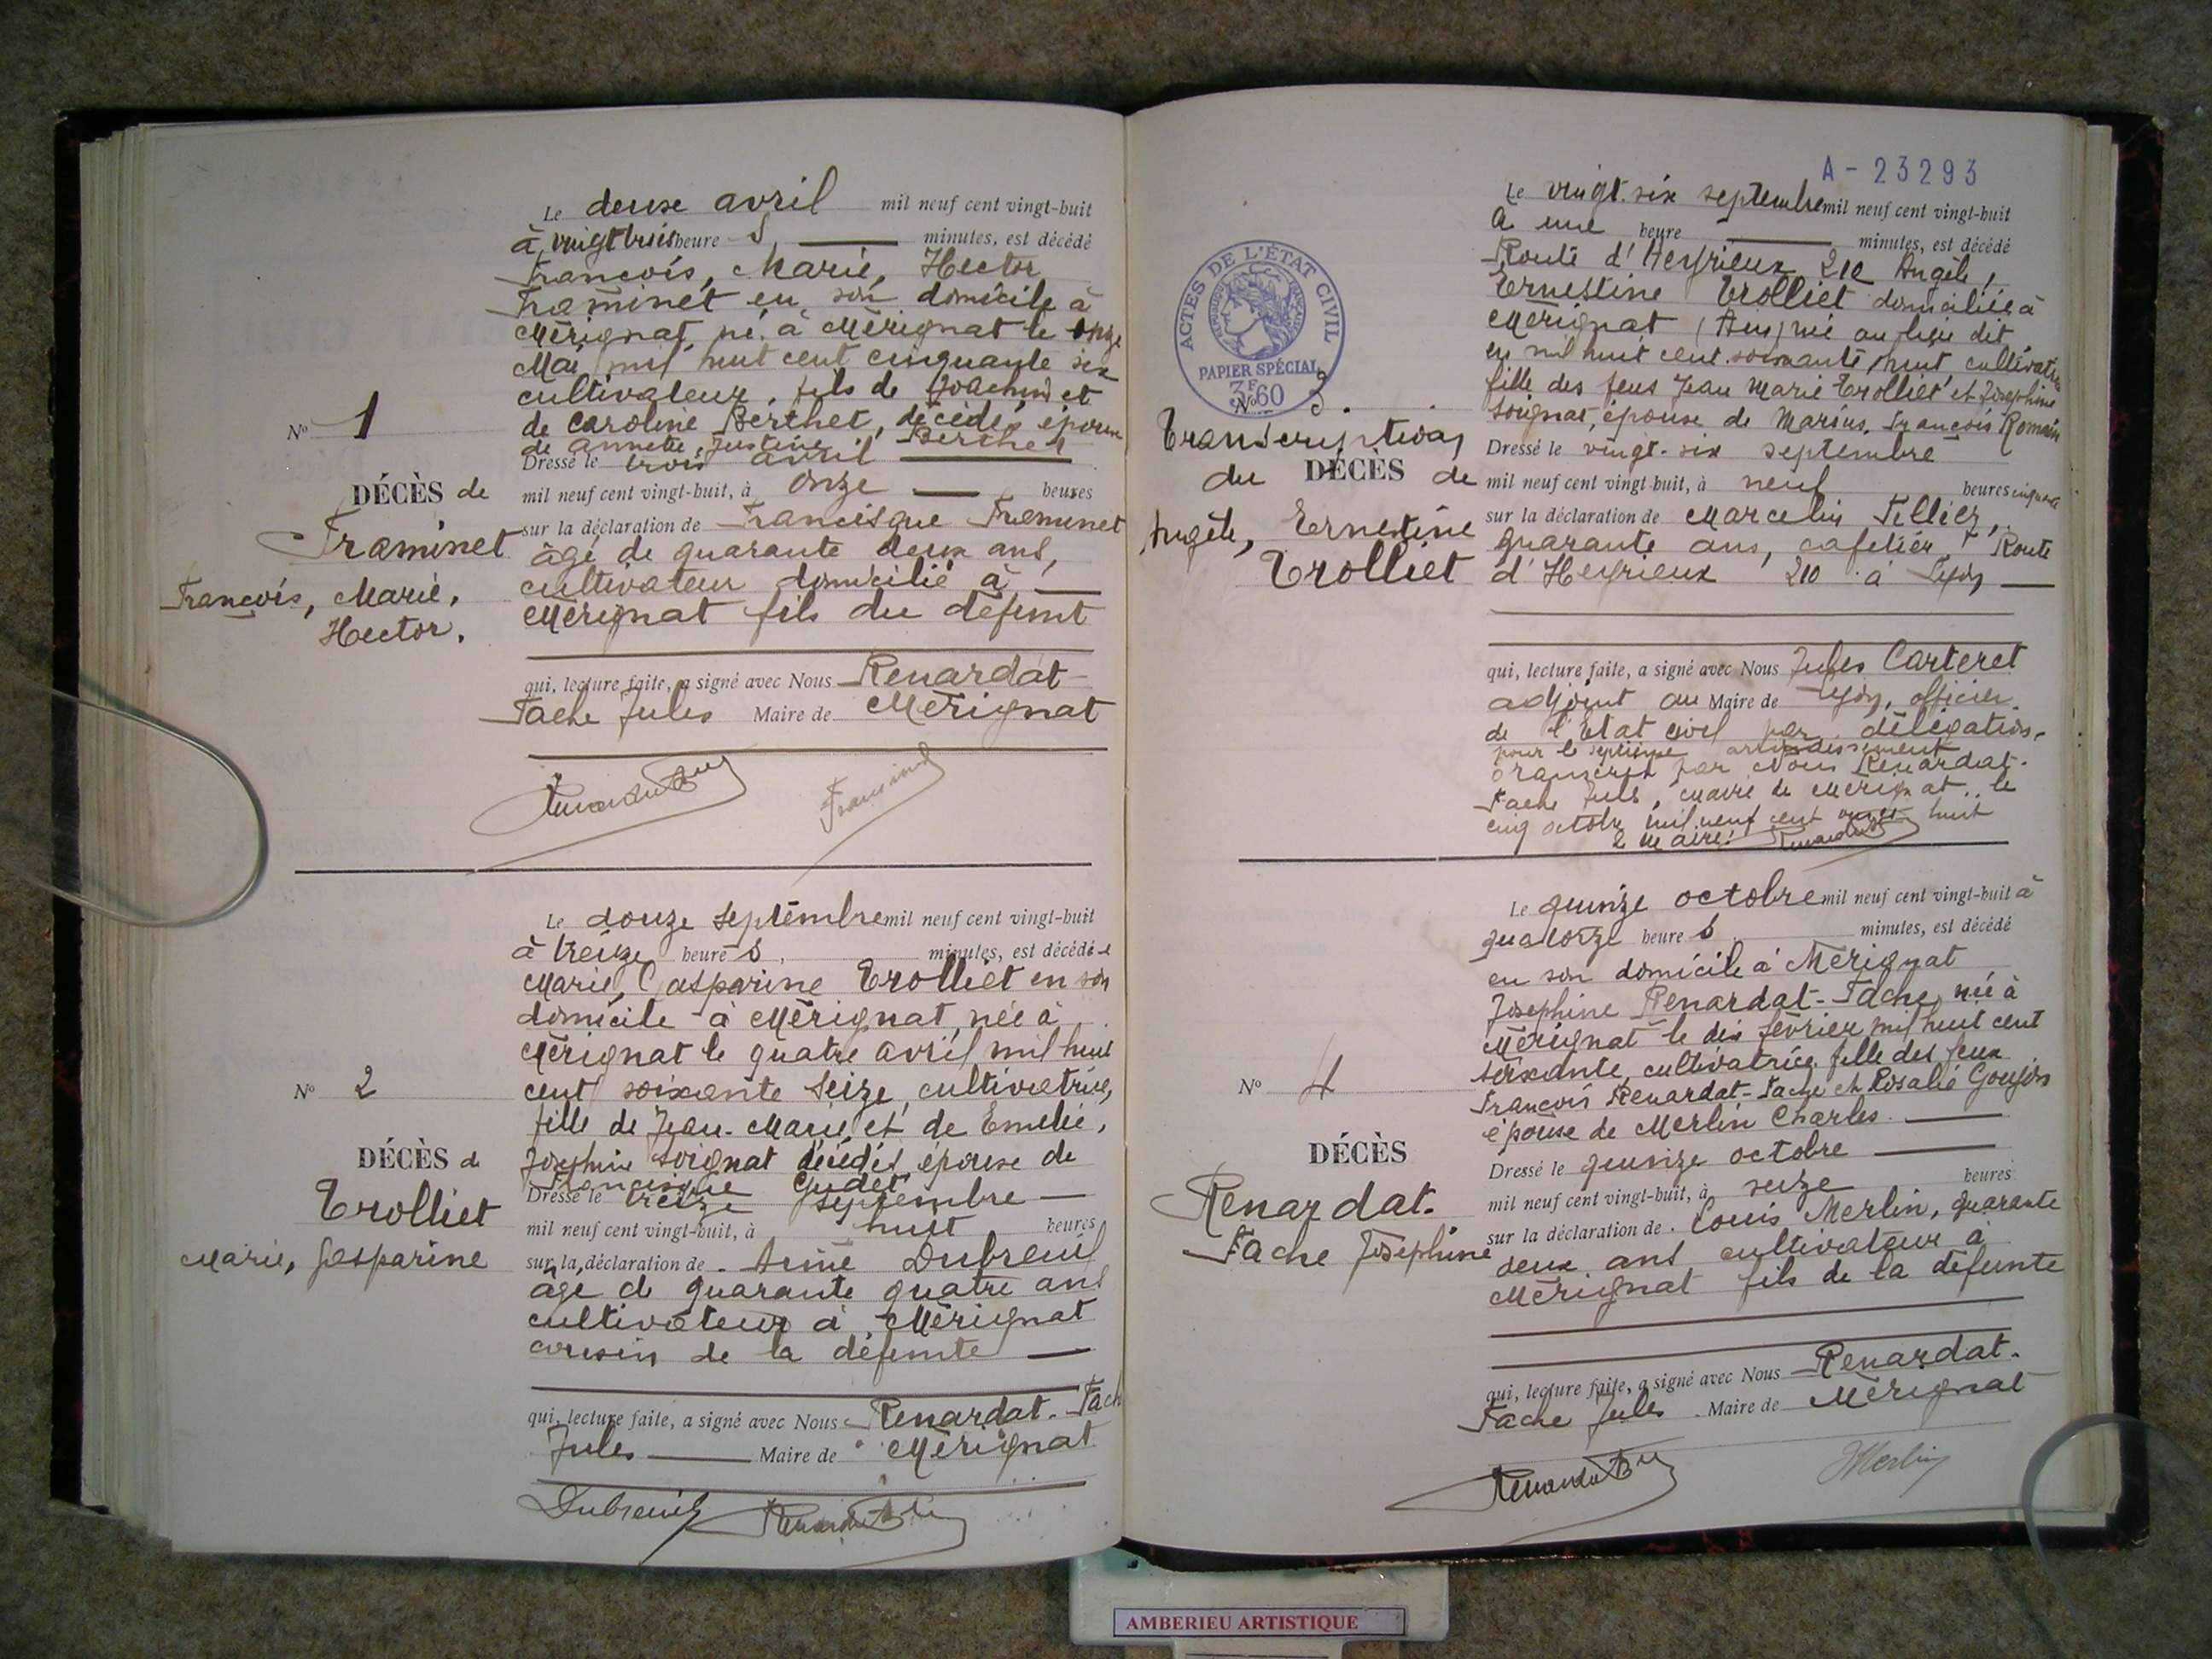 Le deux avril mil neuf cent vingt-huit
à vingt trois heure s, minutes, est décédé
François, Marie, Hector
Traminet en son domicile à
Mérignat, né à Mérignat le onze
Mai mil huit cent cinquante six
cultivateur, fils de Joachim et
de Caroline Berthet, décédés, époux
de Annette, Justine Berthet
Nº 1
Dressé le trois avril
DÉCÈS de
mil neuf cent vingt-huit, à onze heures
Traminet
François, Marie,
Hector.
sur la déclaration de Francisque Traminet
âgé de quarante deux ans,
cultivateur domicilié à
Mérignat fils du défunt
qui, lecture faite, a signé avec Nous Renardat
Tache Jules Maire de Mérignat
Traminet
Le douze septembre mil neuf cent vingt-huit
à treize heure s, minutes, est décédé e
Marie, Gasparine Trolliet en son
domicile à Mérignat, née à
Mérignat le quatre avril mil huit
cent soixante seize, cultivatrice,
fille de Jean-Marie et de Emélie,
Joséphine Soignat décédés, épouse de
Francisque Gudet
Nº 2
DÉCÈS de
Trolliet
Marie, Gasparine
Dressé le treize septembre
mil neuf cent vingt-huit, à huit heures
sur la déclaration de Aimé Dubreuil
âgé de quarante quatre ans
cultivateur à Mérignat
cousin de la défunte
qui, lecture faite, a signé avec Nous Renardat-Tach
Jules Maire de Mérignat
Dubreuil
A-23293
ACTES DE L'ÉTAT CIVIL
RÉPUBLIQUE FRANÇAISE
PAPIER SPÉCIAL
3F60
Le vingt-six septembre mil neuf cent vingt-huit
à une heure minutes, est décédé
Route d'Heyrieux 210 Angèle,
Ernestine Trolliet domiciliée à
Mérignat (Ain) née au lieu dit
en mil huit cent soixante huit, cultivatrice
fille des feus Jean Marie Trolliet et Joséphine
Soignat, épouse de Marius, François Romain
Nº 3.
Transcription
du DÉCÈS de
Angèle, Ernestine
Trolliet
Dressé le vingt-six septembre
mil neuf cent vingt-huit, à neuf heures cinquante
sur la déclaration de Marcelin Tellier,
quarante ans, cafetier, Route
d'Heyrieux 210 à Lyon
qui, lecture faite, a signé avec Nous Jules Carteret
adjoint au Maire de Lyon, officier
de l'Etat civil par délégation,
pour le septième arrondissement
Transcrit par Nous Renardat-
Tache Jules, Maire de Mérignat, le
cinq octobre mil neuf cent vingt huit
Le Maire:
Le quinze octobre mil neuf cent vingt-huit à
quatorze heure s minutes, est décédé
en son domicile à Mérignat
Joséphine Renardat-Tache, née à
Mérignat le dix février mil huit cent
soixante, cultivatrice, fille des feux
François Renardat-Tache et Rosalie Goujon
épouse de Merlin Charles
Nº 4
DÉCÈS
Renardat-
Tache Joséphine
Dressé le quinze octobre
mil neuf cent vingt-huit, à seize heures
sur la déclaration de Louis Merlin, quarante
deux ans cultivateur à
Mérignat fils de la défunte
qui, lecture faite, a signé avec Nous Renardat-
Tache Jules Maire de Mérignat
Merlin
AMBERIEU ARTISTIQUE